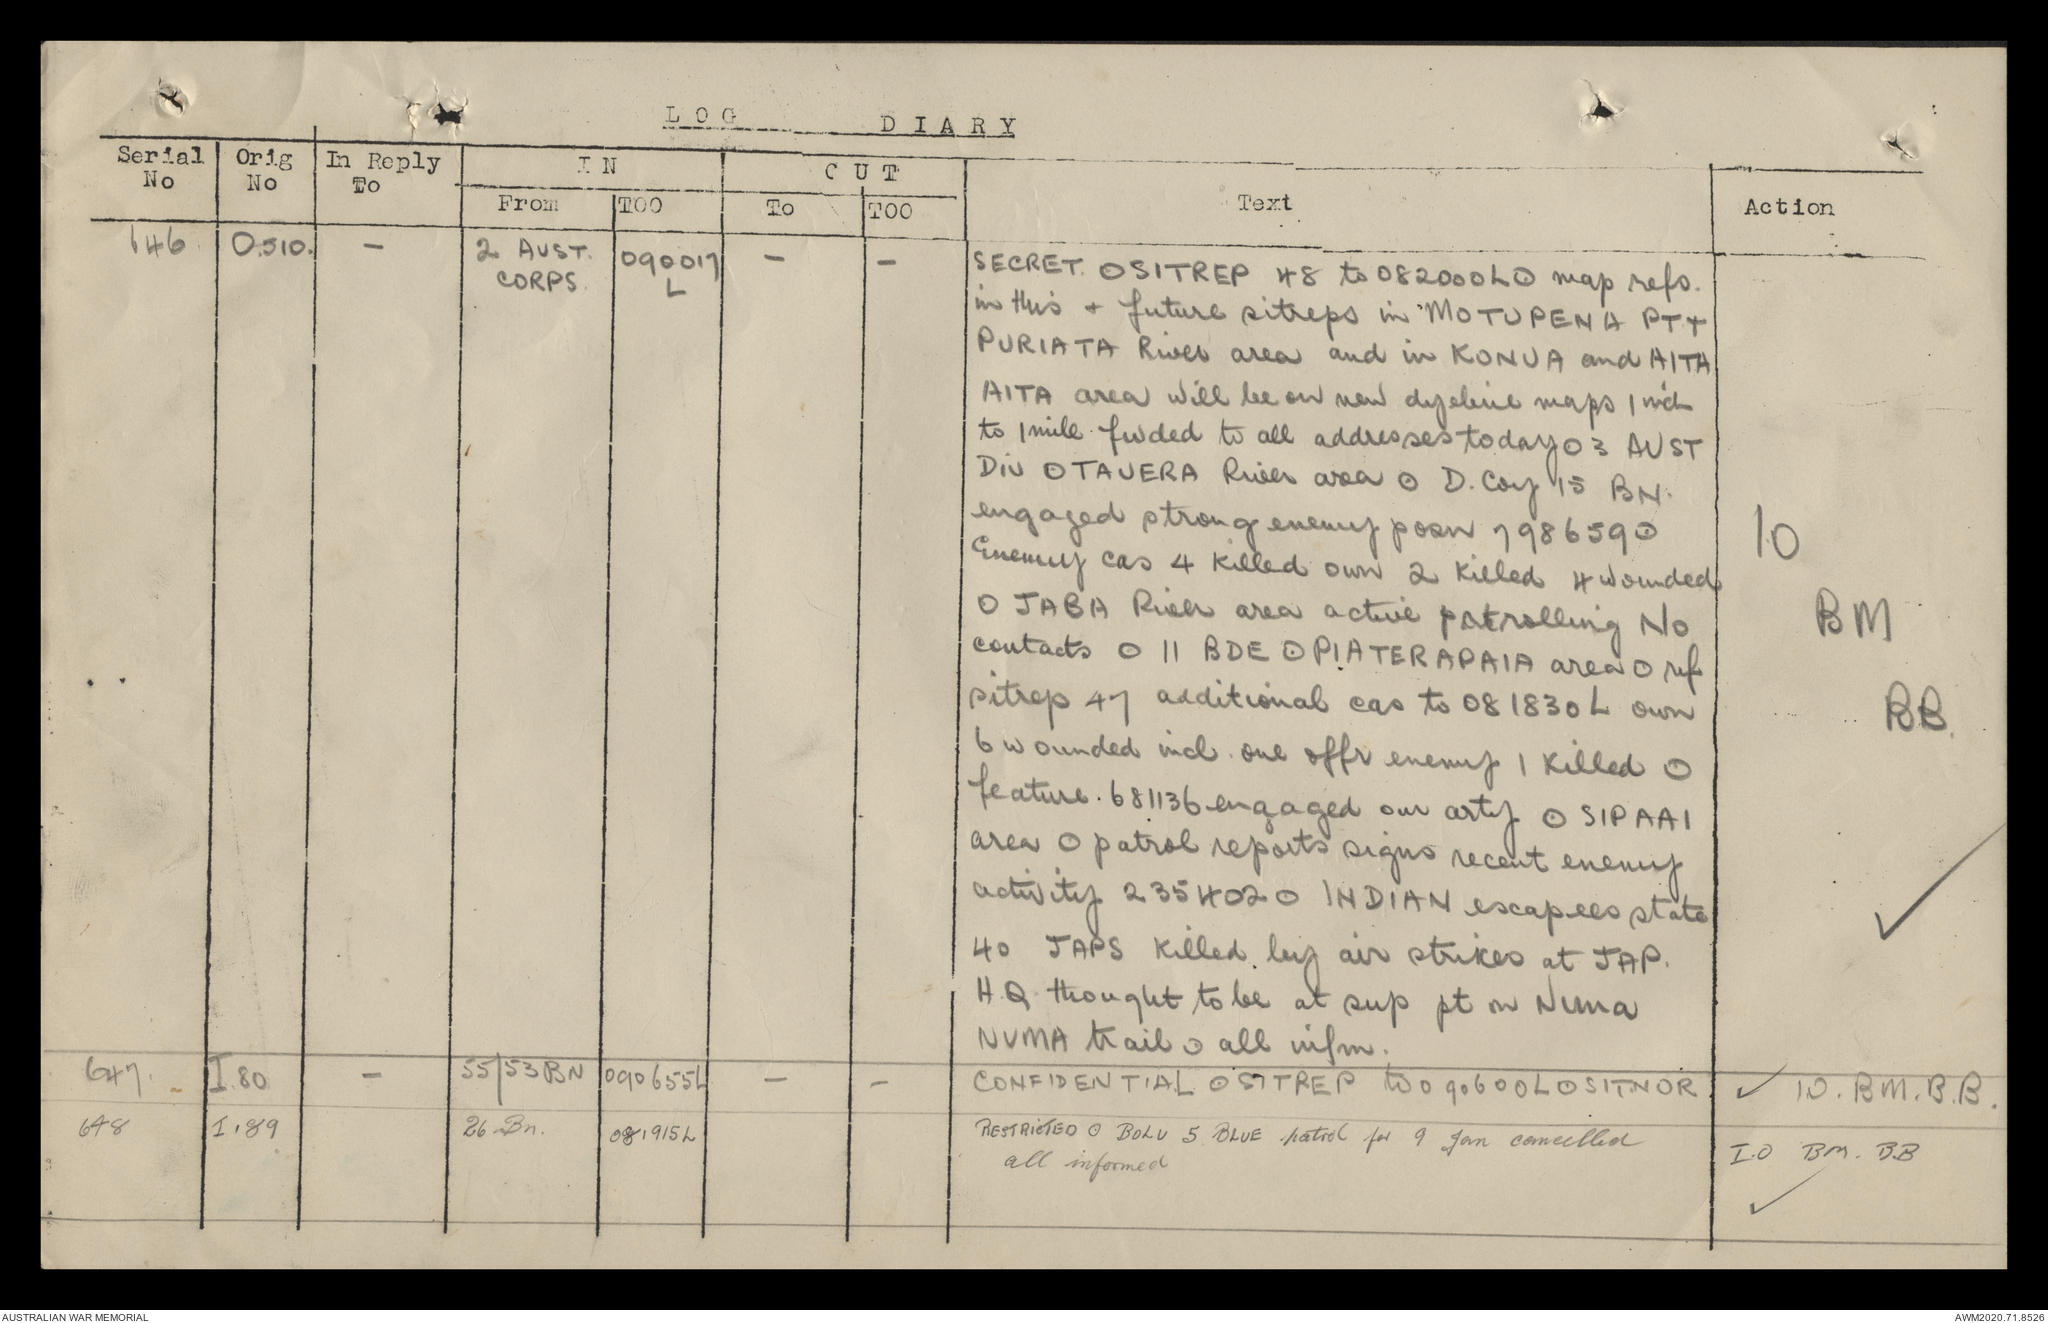 LOG DIARY
Serial No | Orig No | In Reply To | IN | OUT | Text | Action
From | TOO | To | TOO
646 | O.510. | - | 2 AUST. CORPS. | 090017 L | - | - | SECRET. ⊙ SITREP 48 to 082000L ⊙ map refs.
in this + future sitreps in MOTUPENA PT +
PURIATA River area and in KONUA and AITA
AITA area will be on new dyeline maps 1 inch
to 1 mile fwded to all addresses today ⊙ 3 AUST
Div ⊙ TAVERA River area ⊙ D. Coy 15 BN.
engaged strong enemy posn 798659 ⊙
Enemy cas 4 killed own 2 killed 4 wounded
⊙ JABA River area active patrolling No
contacts ⊙ 11 BDE ⊙ PIATERAPAIA area ⊙ ref
sitrep 47 additional cas to 081830L own
6 wounded incl. one offr enemy 1 killed ⊙
feature. 681136 engaged our arty ⊙ SIPAAI
area ⊙ patrol reports signs recent enemy
activity 235402 ⊙ INDIAN escapees state
40 JAPS killed by air strikes at JAP.
H.Q. thought to be at sup pt on Numa
NUMA trail ⊙ all infm.
IO
BM
BB.
647. | I.80 | - | 55/53 BN | 090655L | - | - | CONFIDENTIAL ⊙ SITREP to 090600L ⊙ SITNOR. | ✓ IO. BM. B.B.
648 | I.89 | 26 Bn. | 081915L | RESTRICTED ⊙ BOLU 5 BLUE patrol for 9 Jan cancelled | I.O BM. B.B
all informed